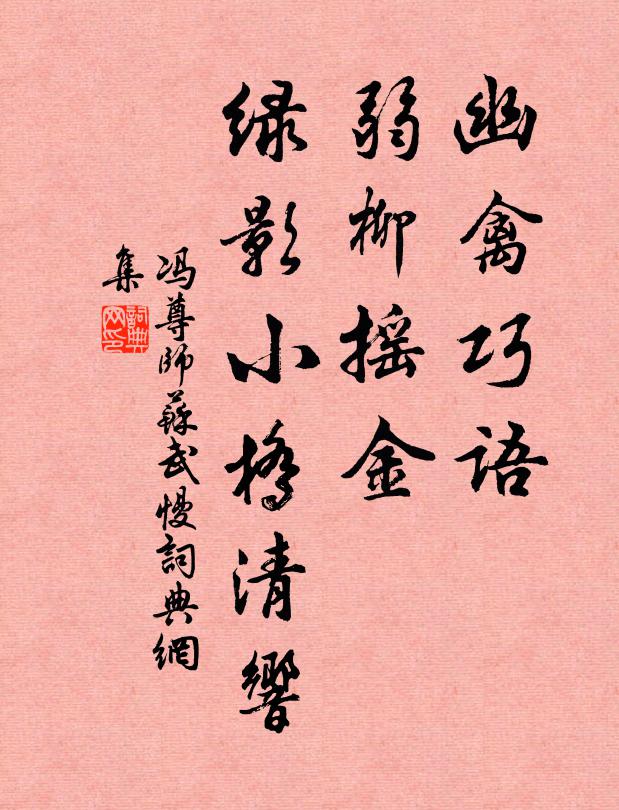 幽禽巧语
弱柳摇金
绿影小桥清响
冯尊师苏武慢词典网
集
词典
网印